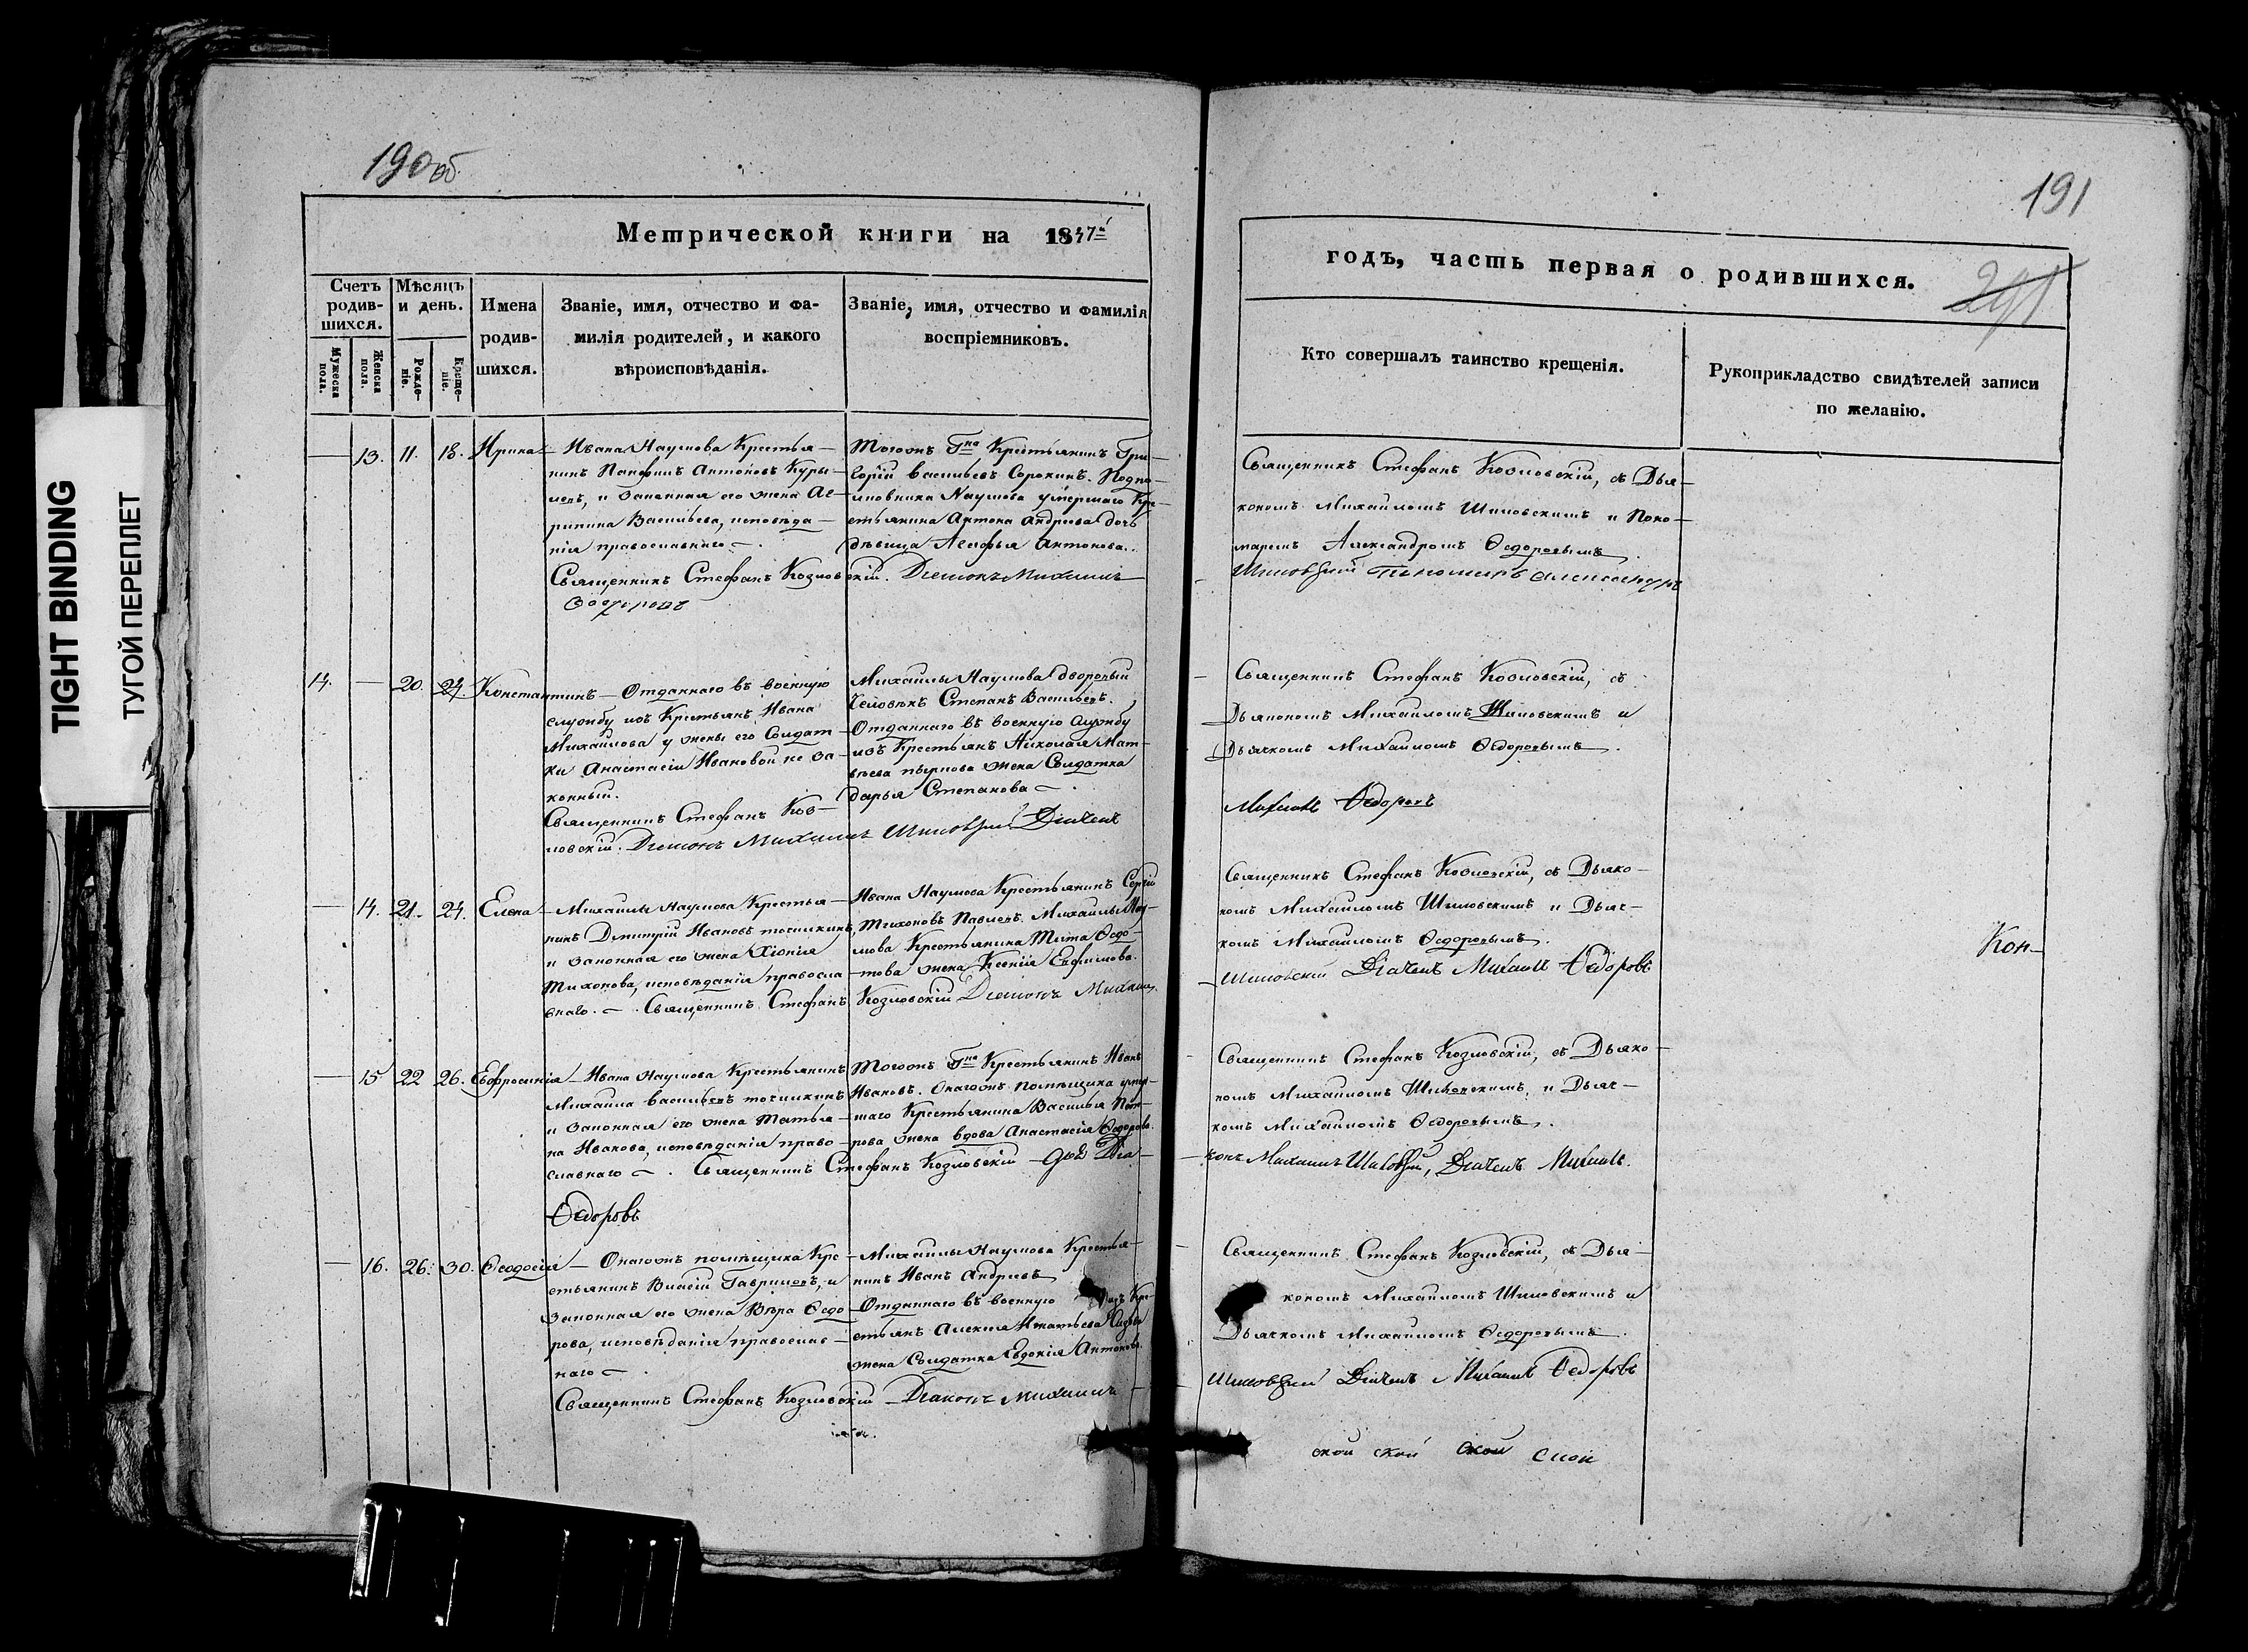 TIGHT BINDING
ТУГОЙ ПЕРЕПЛЕТ
190 об
Метрической книги на 1847й
Счетъ родив-шихся.
Мужеска пола.
Женска пола.
Мѣсяцъ и день.
Рожде-ніе.
Креще-ніе.
Имена
родив-
шихся.
Званіе, имя, отчество и фа-
милія родителей, и какого
вѣроисповѣданія.
Званіе, имя, отчество и фамилія
воспріемниковъ.
— 13. 11. 18. Ирина —
Ивана Наумова Крестья-
нинъ Панфилъ Антоновъ
и законная его жена Аг-
рипина Васильева, исповѣда-
нія православнаго —.
Священникъ Стефанъ Козловскій. Діаконъ Михаилъ
Ѳедоровъ
Тогожъ Гна Крестьянинъ Гри-
горій Васильевъ Сорокинъ. Подпо-
лковника Наумова умершаго Кре-
стьянина Антона Андреева дочь
дѣвица Агафья Антонова.
14. — 20. 24. Константинъ —
Отданнаго въ военную
службу изъ Крестьянъ Ивана
Михайлова у жены его Солдат-
ки Анастасіи Ивановой не за-
конный.
Священникъ Стефанъ Коз-
ловскій. Діаконъ Михаилъ Шиловскій Діачекъ
Михаилы Наумова дворовый
Человѣкъ Степанъ Васильевъ.
Отданнаго въ военную службу
изъ Крестьянъ Николая Мат-
вѣева жена Солдатка
Дарья Степанова —.
— 14. 21. 24. Елена —
Михаилы Наумова Крестья-
нинъ Дмитрій Ивановъ точилкинъ,
и законная его жена Хіонія
Тихонова, исповѣданія правосла-
внаго. —. Священникъ Стефанъ Козловскій Діаконъ Михаилъ
Ивана Наумова Крестьянинъ Сергій
Тихоновъ Павловъ. Михаилы Нау-
мова Крестьянина Тита Ѳедо-
това жена Ксенія Евфимова.
— 15 22 26. Евфросинія —
Ивана Наумова Крестьянинъ
Михаила Васильевъ точилкинъ
и законная его жена Татья-
на Иванова, исповѣданія право-
славнаго —. Священникъ Стефанъ Козловскій Діа-
Ѳедоровъ
Тогожъ Гна Крестьянинъ Иванъ
Ивановъ. Онагожъ помѣщика умер-
шаго Крестьянина Василья
жена вдова Анастасія Ѳедорова.
— 16. 26. 30. Ѳеодосія —
Онагожъ помѣщика Кре-
стьянинъ Власій Гавриловъ, и
законная его жена Вѣра Ѳедо-
рова, исповѣданія православ-
наго —.
Священникъ Стефанъ Козловскій Діаконъ Михаилъ —
Михаилы Наумова Крестья-
нинъ Иванъ Андреевъ
Отданнаго въ военную изъ Кре-
стьянъ Алексѣя Игнатьева
жена Солдатка Евдокія Антонова.
191
годъ, часть первая о родившихся.
291
Кто совершалъ таинство крещенія.
Рукоприкладство свидѣтелей записи
по желанію.
Священникъ Стефанъ Козловскій, съ Дья-
кономъ Михайломъ Шиловскимъ и Поно-
маремъ Александромъ Ѳедоровымъ.
Шиловскій Пономарь Александръ
Священникъ Стефанъ Козловскій, съ
Дьякономъ Михайломъ Шиловскимъ и
Дьячкомъ Михайломъ Ѳедоровымъ.
Михаилъ Ѳедоровъ
Священникъ Стефанъ Козловскій, съ Дьяко-
номъ Михайломъ Шиловскимъ и Дьяч-
комъ Михайломъ Ѳедоровымъ.
Шиловскій Діачекъ Михаилъ Ѳедоровъ
Кон-
Священникъ Стефанъ Козловскій, съ Дьяко-
номъ Михайломъ Шиловскимъ, и Дьяч-
комъ Михайломъ Ѳедоровымъ.
конъ Михаилъ Шиловскій, Діачекъ Михаилъ.
Священникъ Стефанъ Козловскій, съ Дья-
кономъ Михайломъ Шиловскимъ и
Дьячкомъ Михайломъ Ѳедоровымъ.
Шиловскій Діачекъ Михаилъ Ѳедоровъ
ской ской ской ской